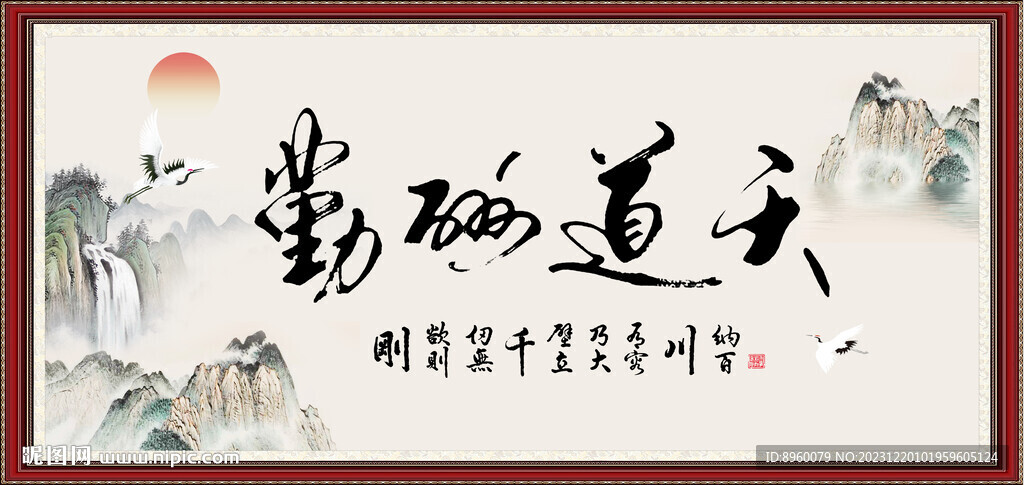 天道酬勤
纳百川有容乃大壁立千仞無欲则剛
昵图网 www.nipic.com
ID:8960079 NO:20231220101959605124